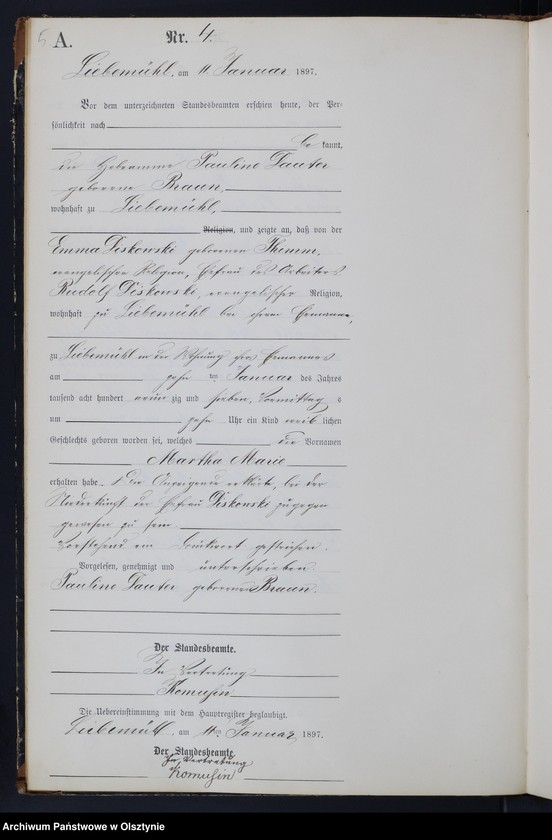 5 A.
Nr. 4.
Liebemühl, am 11 Januar 1897.
Vor dem unterzeichneten Standesbeamten erschien heute, der Per-
sönlichkeit nach
be kannt,
die Hebeamme Pauline Dauter
geborene Braun,
wohnhaft zu Liebemühl,
Religion, und zeigte an, daß von der
Emma Diskowski geborenen Themm,
evangelischer Religion, Ehefrau des Arbeiters
Rudolf Diskowski, evangelischer Religion,
wohnhaft zu Liebemühl bei ihrem Ehemanne,
zu Liebemühl in der Wohnung ihres Ehemannes
am zehn ten Januar des Jahres
tausend acht hundert neun zig und sieben, Vormittag s
um zehn Uhr ein Kind weib lichen
Geschlechts geboren worden sei, welches die Vornamen
Martha Marie
erhalten habe. Die Anzeigende erklärte, bei der
Niederkunft der Ehefrau Diskowski zugegen
gewesen zu sein
Vorstehend ein Druckwort gestrichen.
Vorgelesen, genehmigt und unterschrieben
Pauline Dauter geborene Braun.
Der Standesbeamte.
In Vertretung
Komusin
Die Uebereinstimmung mit dem Hauptregister beglaubigt.
Liebemühl, am 11ten Januar 1897.
Der Standesbeamte.
In Vertretung
Komusin
Archiwum Państwowe w Olsztynie